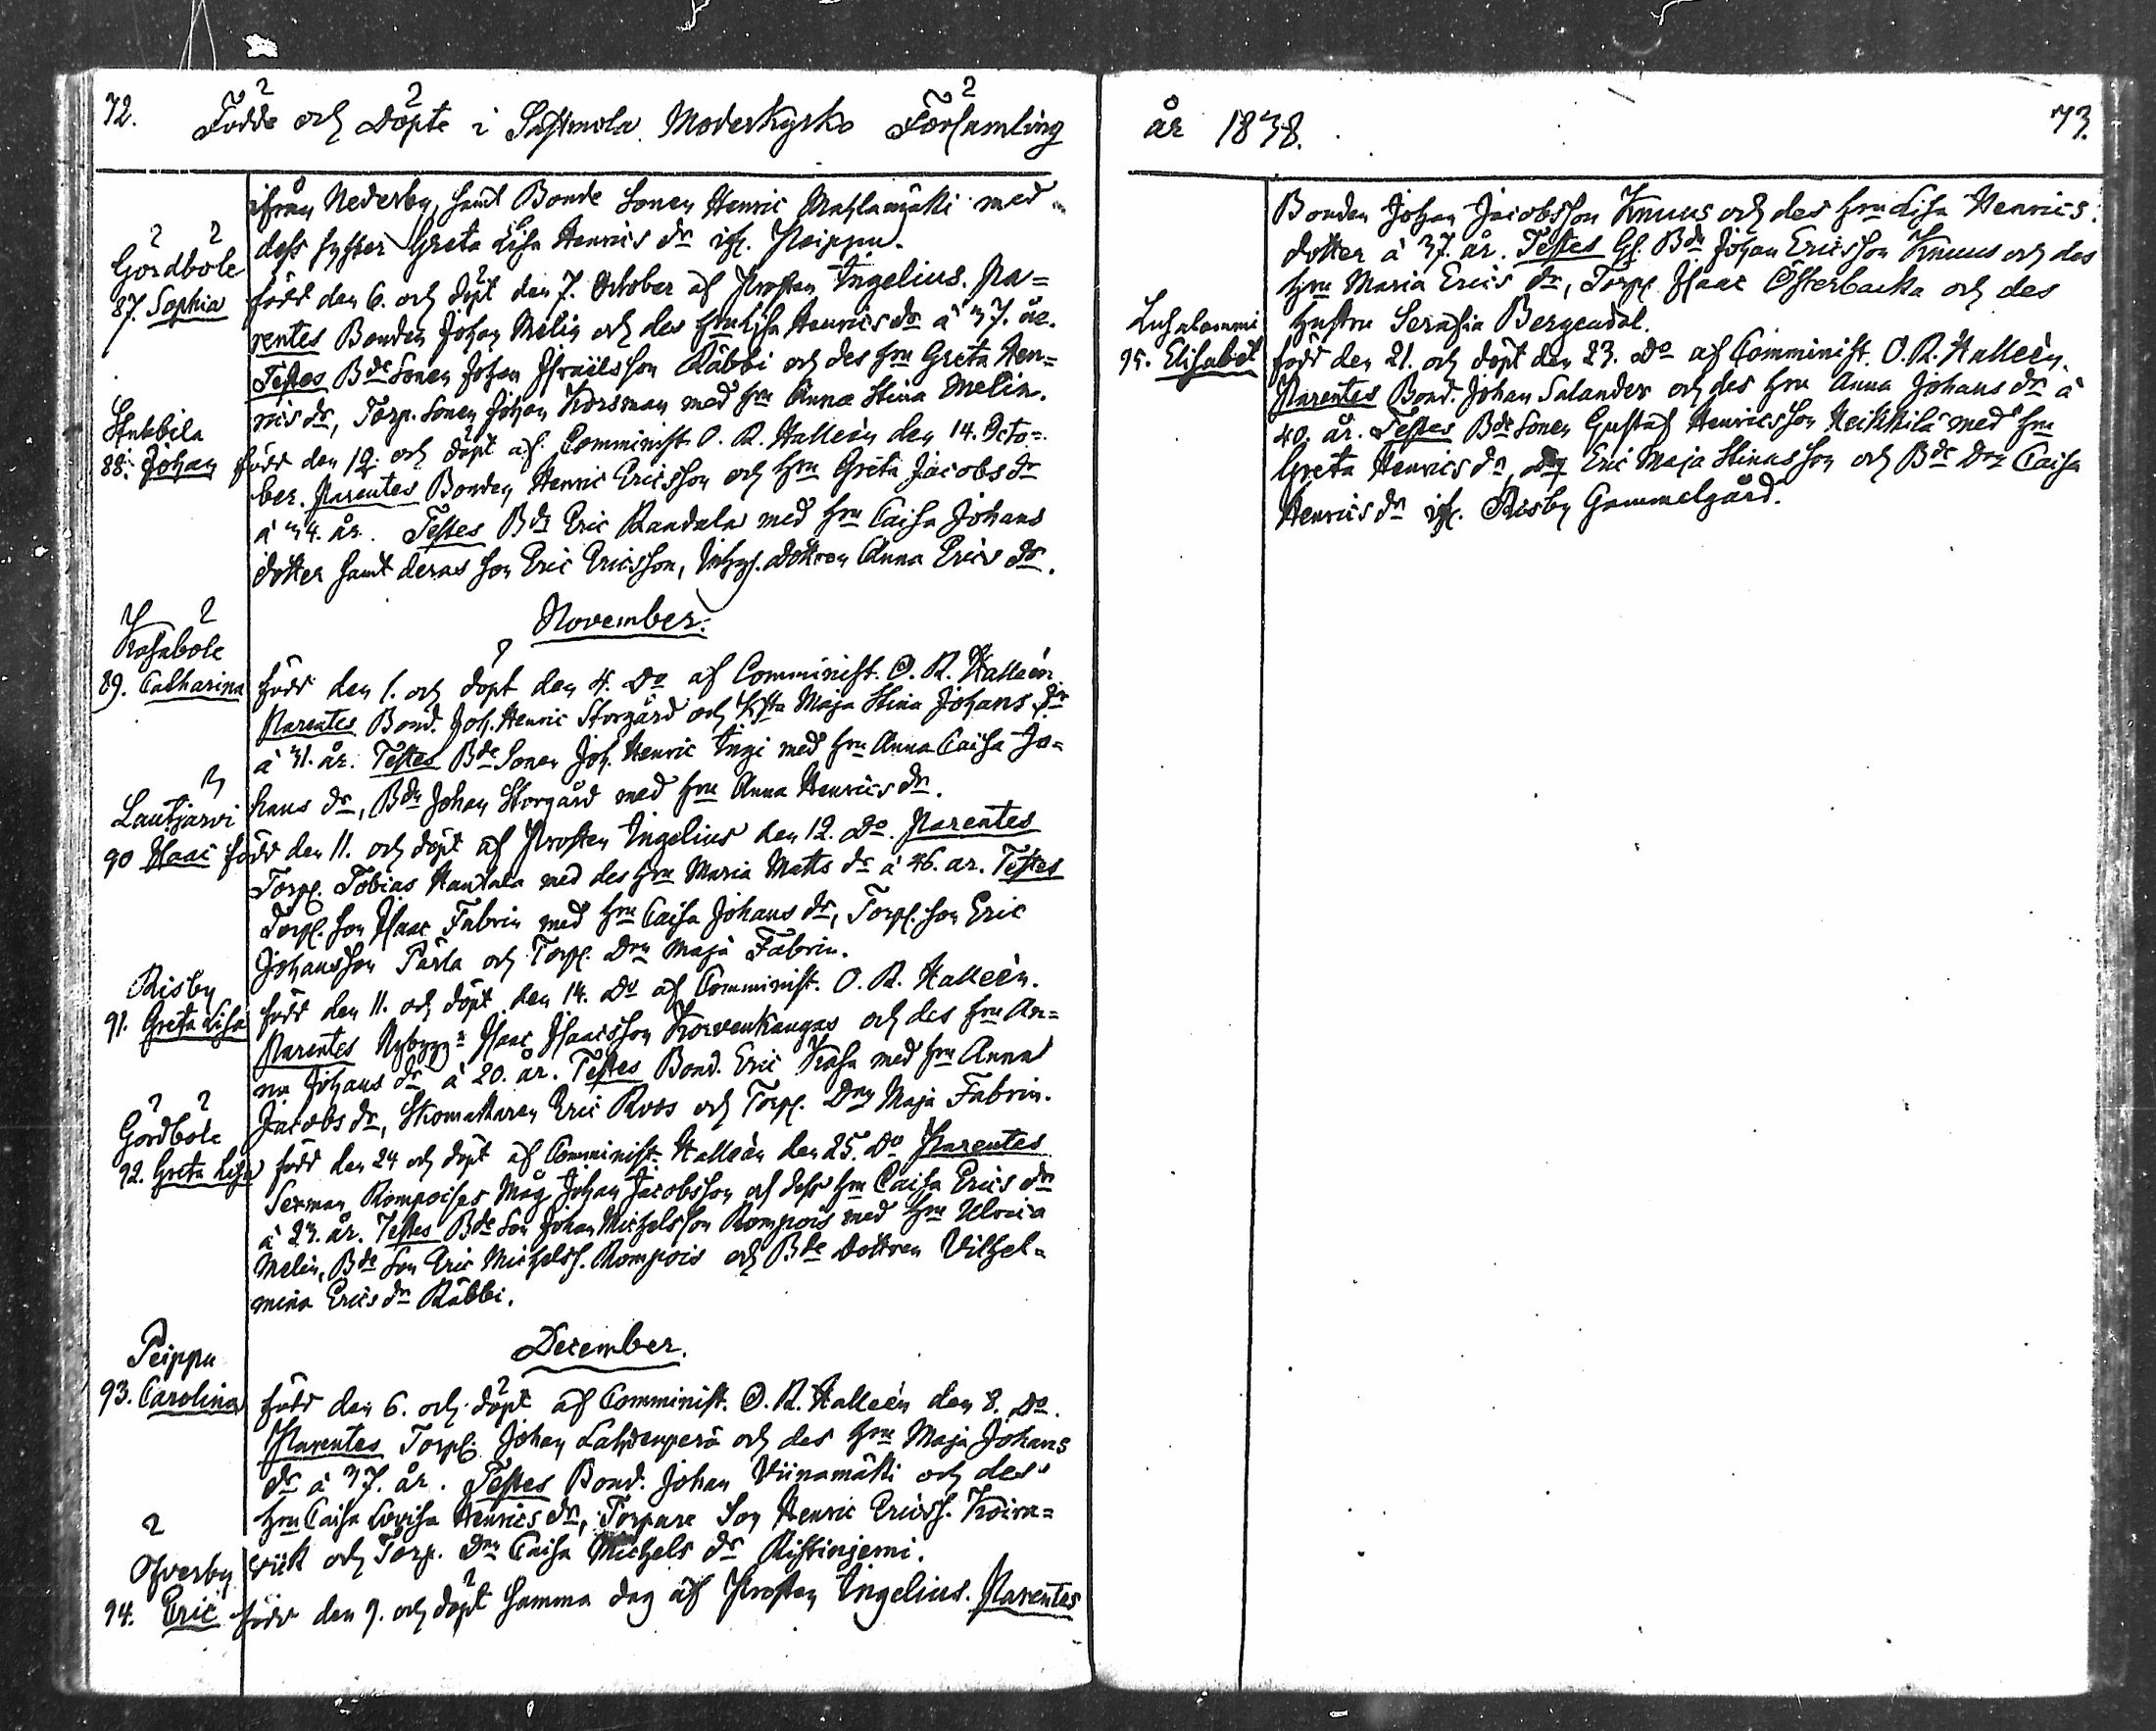 72. Födde och Döpte i Sastmola Moderkyrko Församling
ifrån Nederby, samt Bonde Sonen Henric Mahlamäki med
dess syster Greta Lisa Henrics dr ifr. Peippu.
Gördböle
87. Sophia född den 6. och döpt den 7. October af Prosten Ingelius. Pa=
rentes Bonden Johan Melin och des Hru Lisa Henrics dr à 37. år.
Testes Bde Sonen Johan Israëlsson Räbbi och des Hru Greta Hen=
rics dr, Torp. Sonen Johan Korsman med Hru Anna Stina Melin.
Stubbila
88. Johan född den 12. och döpt af Comminist. O. R. Halleèn den 14. Octo=
ber. Parentes Bonden Henric Ericsson och Hru Greta Jacobs dr
à 34. år. Testes Bdn Eric Randala med Hru Caisa Johans
dotter samt deras son Eric Ericsson, Inhys. dottren Anna Erics dr.
November.
Kasaböle
89. Catharina född den 1. och döpt den 4. Do af Comminist. O. R. Halleèn
Parentes Bond. Joh. Henric Storgård och Hru Maja Stina Johans dr
à 31. år. Testes Bde Sonen Joh. Henric Ingi med Hru Anna Caisa Jo=
hans dr, Bdn Johan Storgård med Hru Anna Henrics dr.
Lautjärvi
90 Isaac född den 11. och döpt af Prosten Ingelius den 12. Do. Parentes
Torp. Tobias Hautala med des Hru Maria Matts dr à 46. år. Testes
Torp. son Isaac Fabrin med Hru Caisa Johans dr, Torp. son Eric
Johansson Pärla och Torp. Drn Maja Fabrin.
Risby
91. Greta Lisa född den 11. och döpt den 14. Do af Comminist. O. R. Halleèn.
Parentes Nybygg. Isaac Isaacsson Korvenkangas och des Hru An=
na Johans dr à 20. år. Testes Bond. Eric Kasa med Hru Anna
Jacobs dr, Skomakaren Eric Roos och Torp. Drn Maja Fabrin.
Gördböle
92. Greta Lisa född den 24 och döpt af Comminist. Halleèn den 25. Do Parentes
Sexman Rompoises Måg Johan Jacobsson och dess Hru Caisa Erics dr
à 23. år. Testes Bde Son Johan Michelsson Rompois med Hru Ulrica
Melin, Bde Son Eric Michelss. Rompois och Bde dottren Vilhel=
mina Erics dr Räbbi.
December.
Peippu
93. Carolina född den 6. och döpt af Comminist. O. R. Halleèn den 8. Do.
Parentes Torp. Johan Lahdenperä och des Hru Maja Johans
dr à 37. år. Testes Bond. Johan Viinamäki och des
Hru Caisa Lovisa Henrics dr, Torpare Son Henric Ericss. Koira=
viik och Torp. Drn Caisa Michels dr Ristinjemi.
Öfverby
94. Eric född den 9. och döpt samma dag af Prosten Ingelius. Parentes
år 1838. 73.
Bonden Johan Jacobsson Knuus och des Hru Lisa Henrics
dotter à 37. år. Testes Gl. Bdn Johan Ericsson Knuus och des
Hru Maria Erics dr, Torp. Isaac Österbacka och des
Hustru Serafia Bergendal.
Lusalammi
95. Elisabet född den 21. och döpt den 23. Do af Comminist. O. R. Halleèn.
Parentes Bond. Johan Salander och des Hru Anna Johans dr à
40. år. Testes Bde Sonen Gustaf Henricsson Heikkilä med Hru
Greta Henrics dr, Eric Maja Stinasson och Bde Drn Caisa
Henrics dr ifr. Risby Gammelgård.